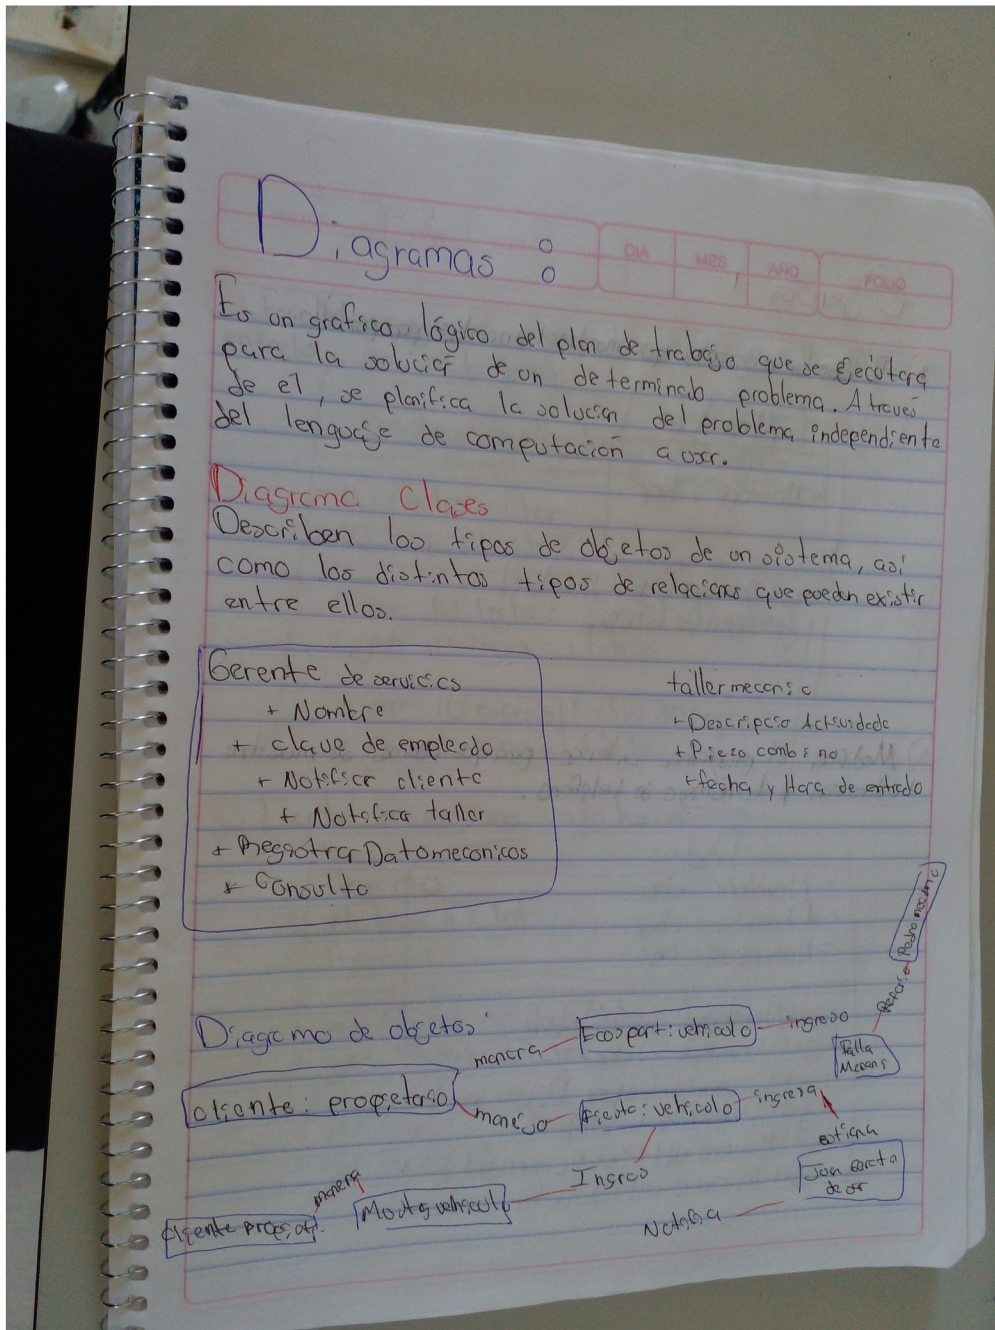 Diagramas :
DIA MES AÑO FOLIO
Es un grafico lógico del plan de trabajo que se ejecutara
para la solución de un determinado problema. A traves
de el, se planifica la solucion del problema independiente
del lenguaje de computación a usar.
Diagrama Clases
Describen los tipos de objetos de un sistema, asi
como los distintos tipos de relaciones que pueden existir
entre ellos.
Gerente de servicios
+ Nombre
+ clave de empleado
+ Notificar cliente
+ Notificar taller
+ Registrar Dato mecanicos
+ Consulta
taller mecanic
+ Descripcio Actividade
+ Pieza
+ fecha y Hora de entrada
Diagrama de objetos
cliente: propietario
manera
Ecospart: vehiculo
ingreso
Falla
Pedro mecanic
manejo
Fiesta: vehiculo
ingresa
Ingreso
cliente
manera
vehiculo